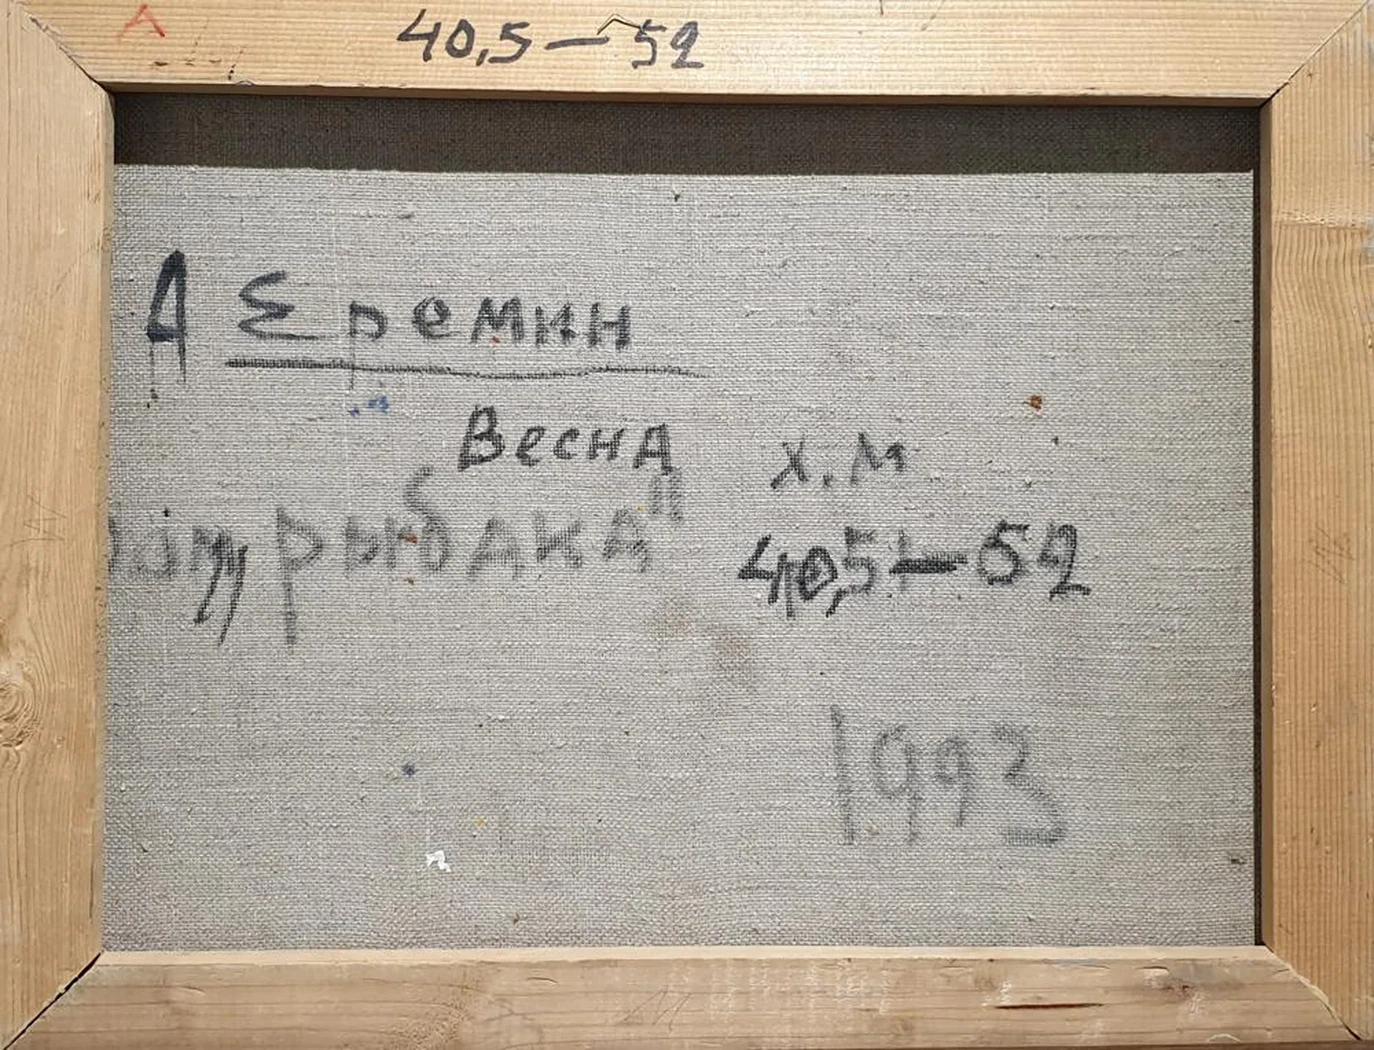 А
40,5 — 52
А Еремин
Весна х.м
„рыбака" 40,5 — 52
1993